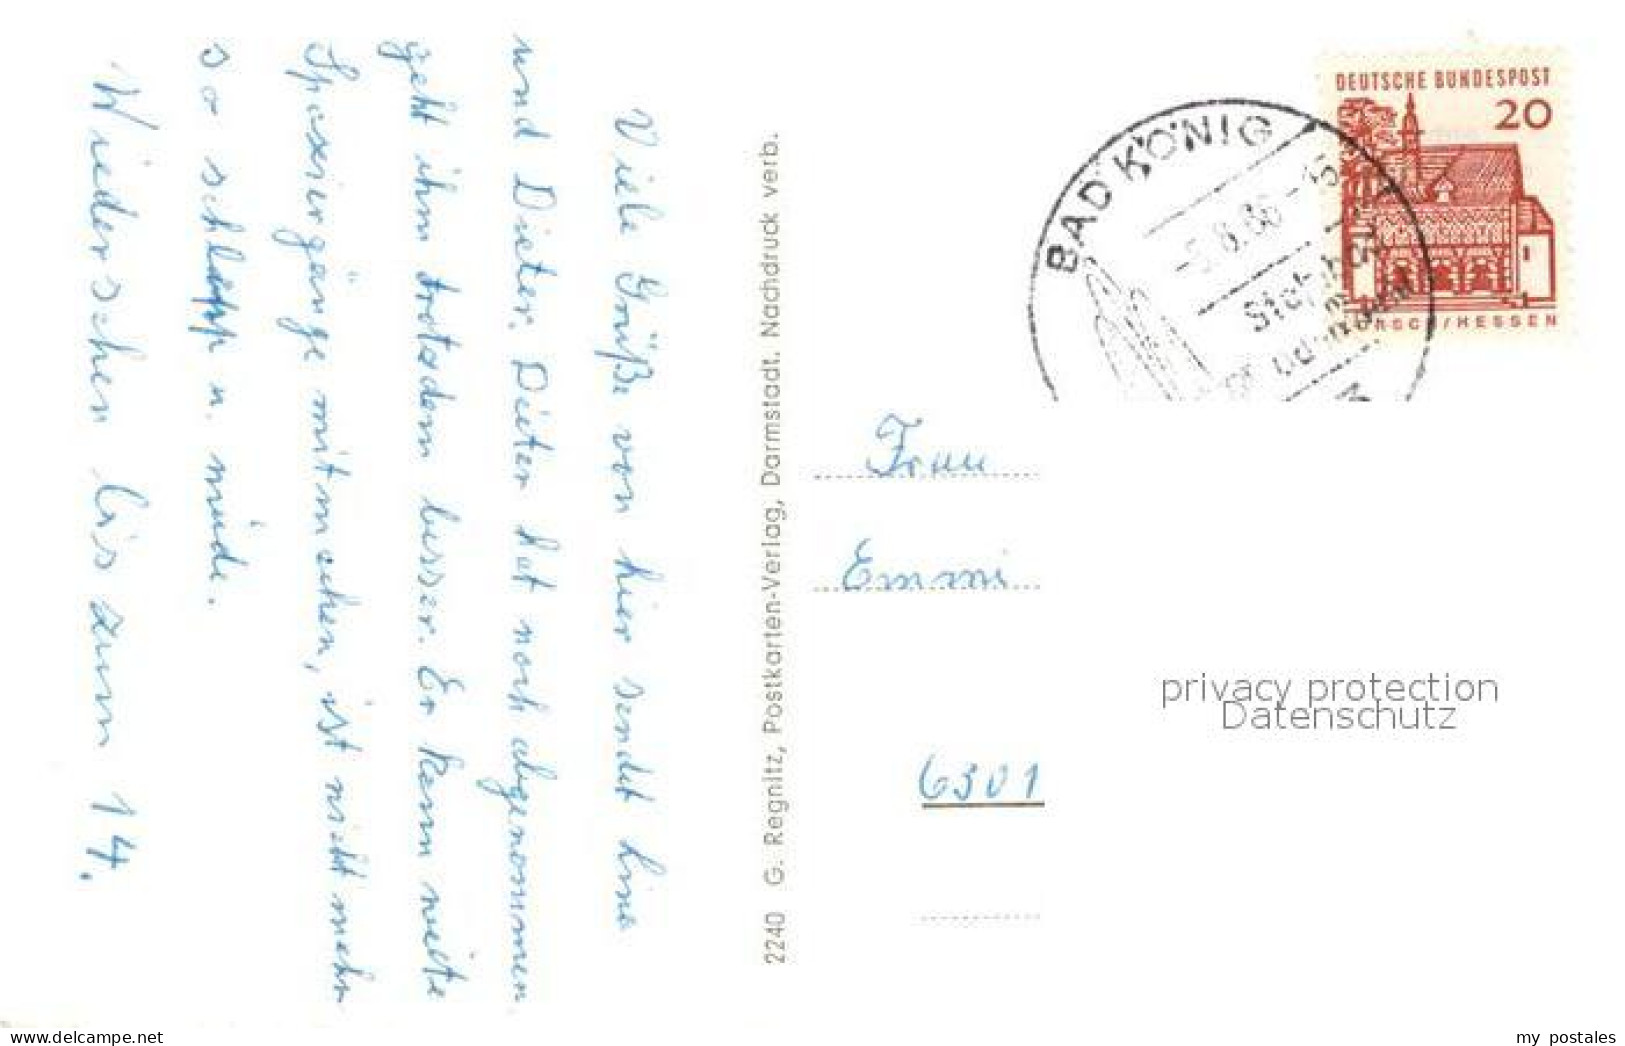 Viele Grüße von hier sendet Lina
und Dieter. Dieter hat noch abgenommen
geht ihm trotzdem besser. Er kann weite
Spaziergänge mitmachen, ist nicht mehr
so schlapp u. müde.
Wiedersehen bis zum 14.
2240 G. Regnitz, Postkarten-Verlag, Darmstadt. Nachdruck verb.
DEUTSCHE BUNDESPOST
20
LORSCH/HESSEN
BAD KÖNIG
-5.8.66-15
Frau
Emmi
6301
privacy protection
Datenschutz
www.delcampe.net
my_postales